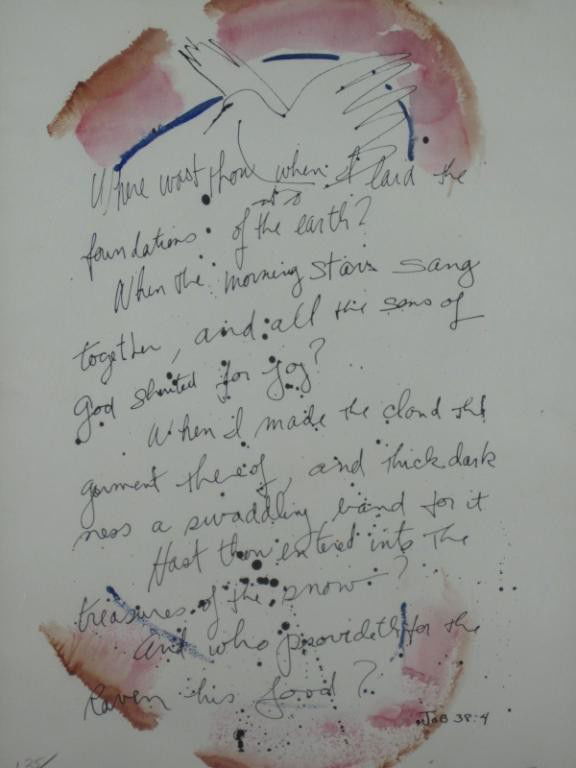 Where wast thou when I laid the
foundations of the earth?
When the morning stars sang
together, and all the sons of
god shouted for joy?
When I made the cloud the
garment thereof, and thick dark
ness a swaddling band for it
Hast thou entered into the
treasures of the snow?
and who provideth for the
raven his food?
JOB 38:4